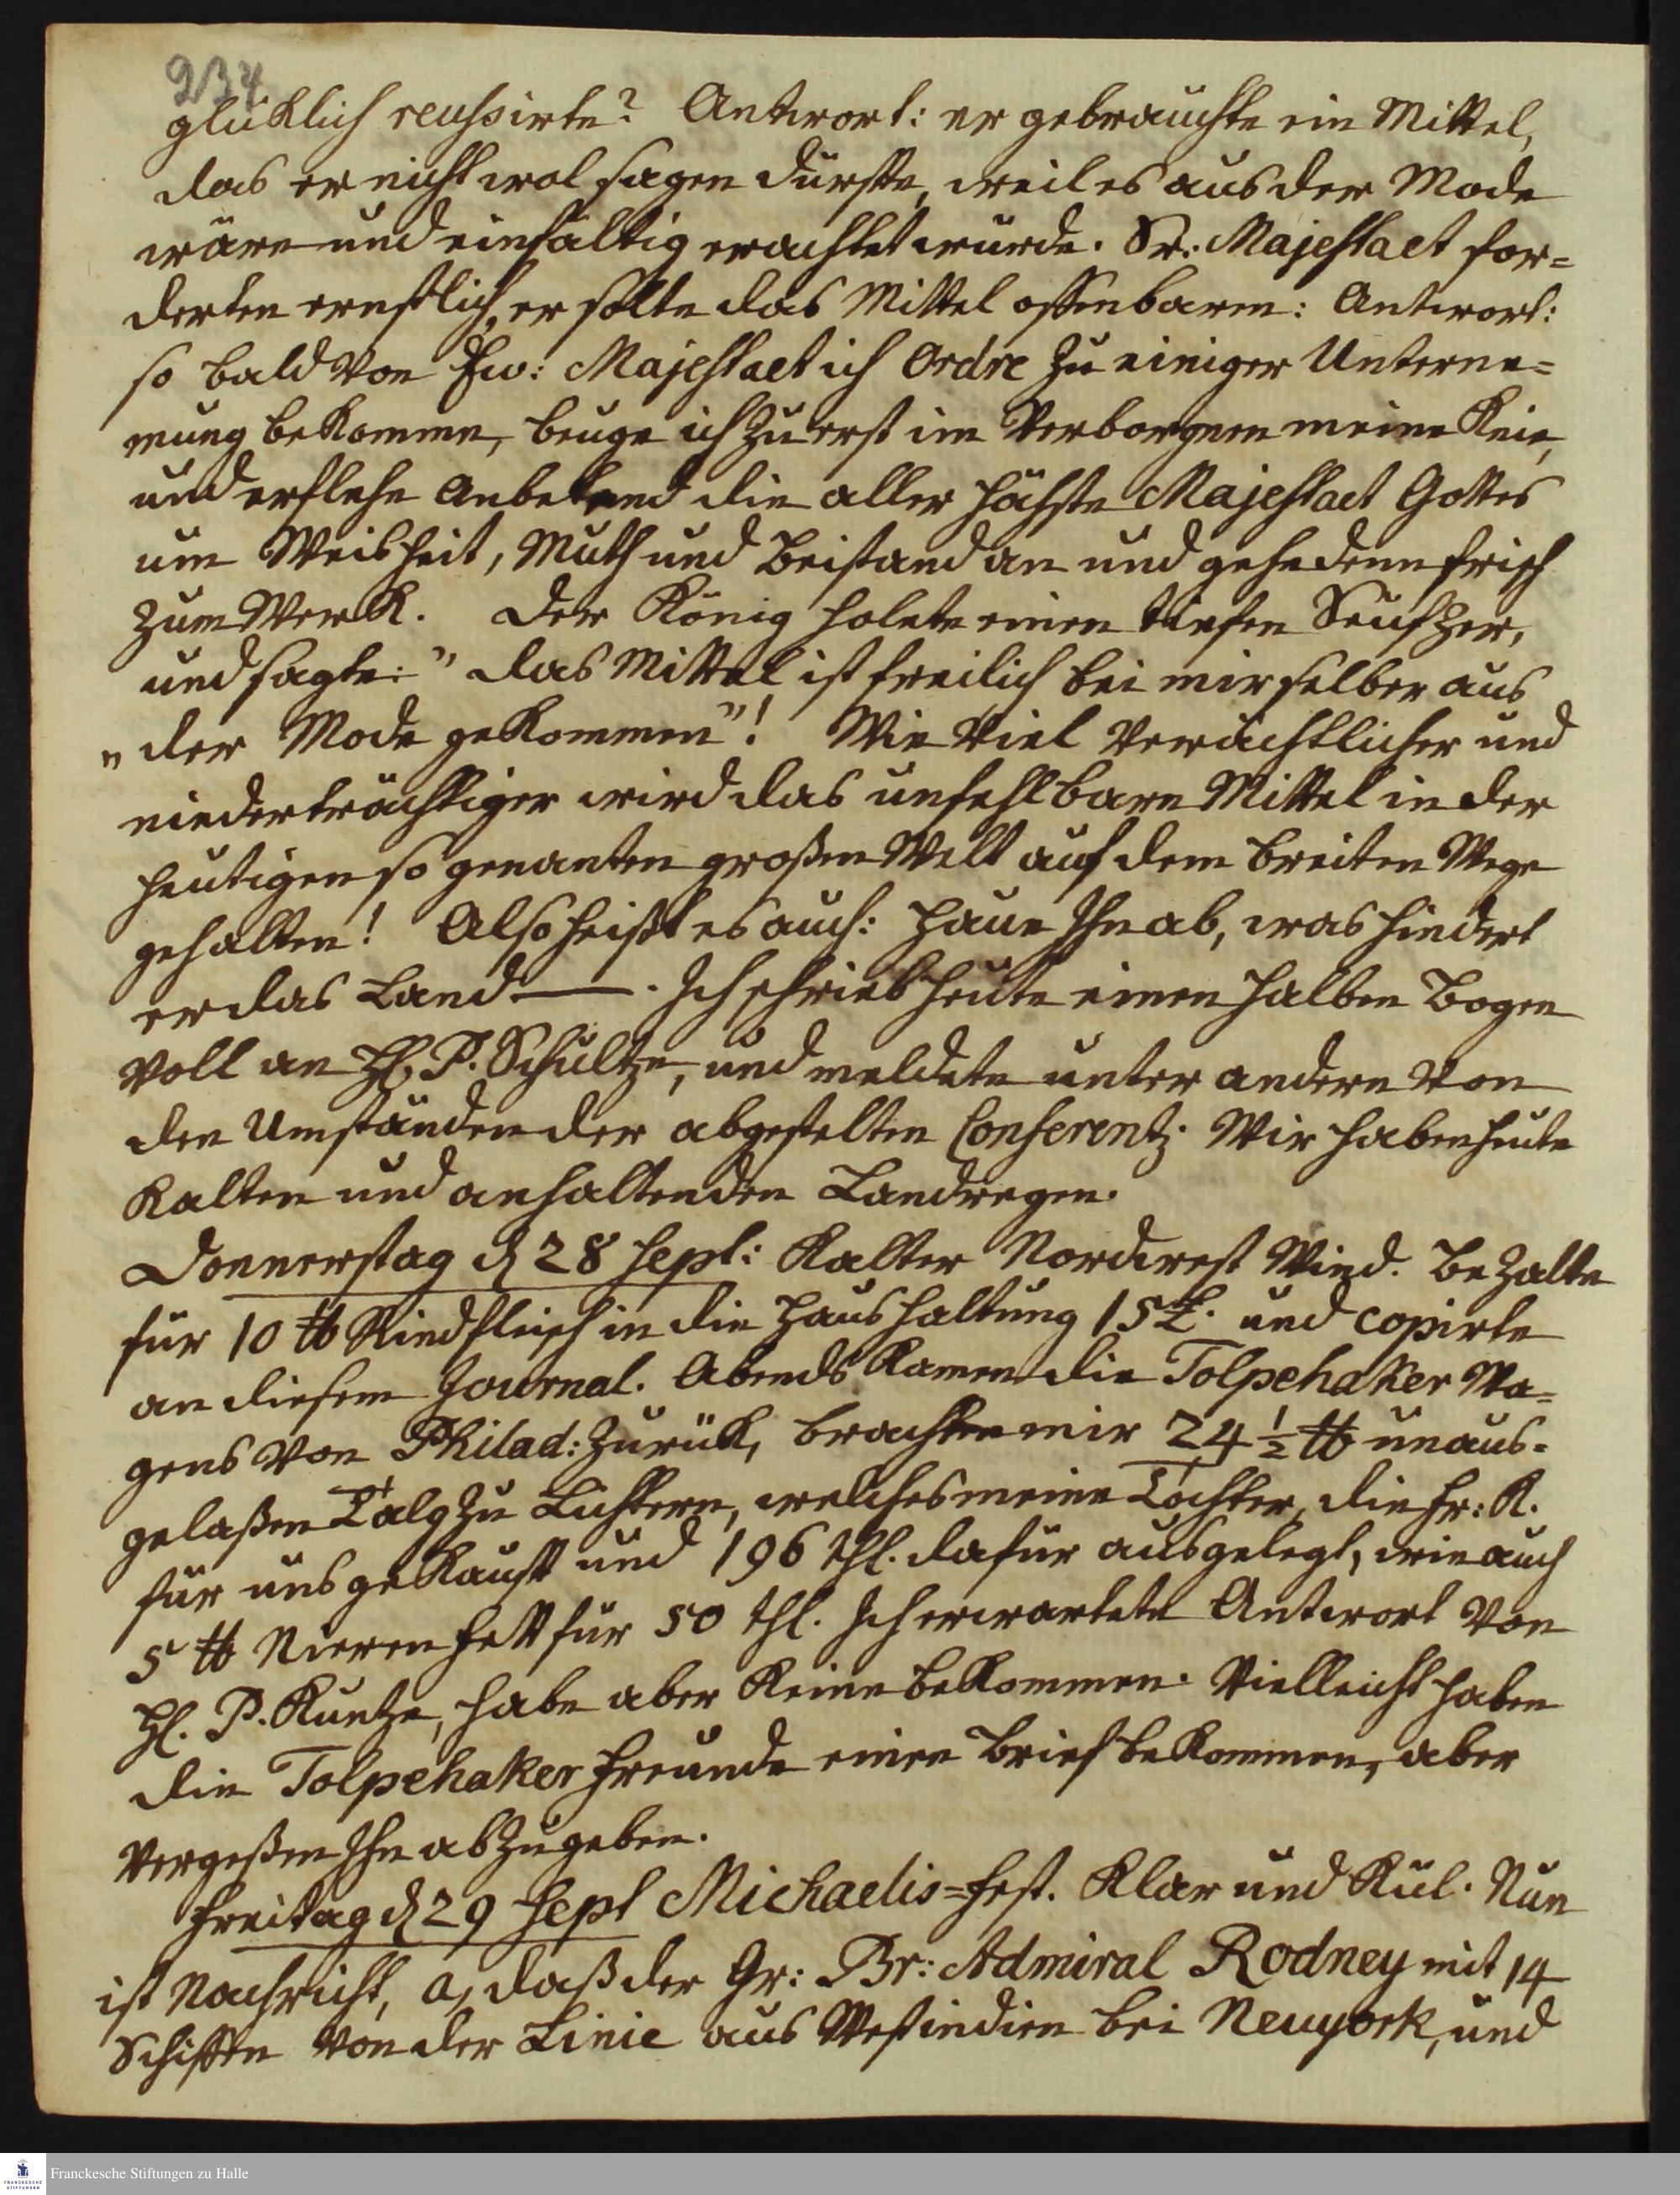 234
glücklich reussirte? Antwort: er gebrauchte ein Mittel,
das er nicht wol sagen dürfte, weil es aus der Mode
wäre und einfältig erachtet würde. Sr: Majestaet for=
derten ernstlich, er solte das Mittel offenbaren: Antwort:
so bald von Ew: Majestaet ich Ordre zu einiger Unterne=
mung bekomme, beuge ich zu erst im Verborgnen meine Knie,
und erflehe anbetend die aller höchste Majestaet Gottes
um Weisheit, Muth und Beistand an und gehe denn frisch
zum Werk. Der König holete einen tiefen Seufzer,
und sagte: " das Mittel ist freilich bei mir selber aus
" der Mode gekommen"! Wie viel verächtlicher und
niederträchtiger wird das unfehlbare Mittel in der
heutigen so genanten großen Welt auf dem breiten Wege
gehalten! Also heißt es auch: Haue Ihn ab, was hindert
er das Land —. Ich schrieb heute einen halben Bogen
voll an H. P. Schultze, und meldete unter andern von
den Umständen der abgestelten Conferentz. Wir haben heute
kalten und anhaltenden Landregen.
Donnerstag d 28 Sept: Kalter Nordwest Wind. Bezalte
für 10 ℔ Rindfleisch in die Haushaltung 15 £. und copirte
an diesem Journal. Abends kamen die Tolpehaker Wa=
gens von Philad: zurük, brachten mir 24 ½ ℔ unaus=
gelaßen Talg zu Lichtern, welches meine Tochter, die Fr: K.
für uns gekauft und 196 thl. dafür ausgelegt, wie auch
5 ℔ Nierenfett für 50 thl. Ich erwartete Antwort von
H. P. Kuntze, habe aber keine bekommen. Vielleicht haben
die Tolpehaker Freunde einen Brief bekommen, aber
vergeßen Ihn abzugeben.
Freitag d 29 Sept Michaelis=Fest. Klar und kül. Nun
ist Nachricht, a, daß der Gr: Br: Admiral Rodney mit 14
Schiffen von der Linie aus Westindien bei Neuyork, und
Franckesche Stiftungen zu Halle